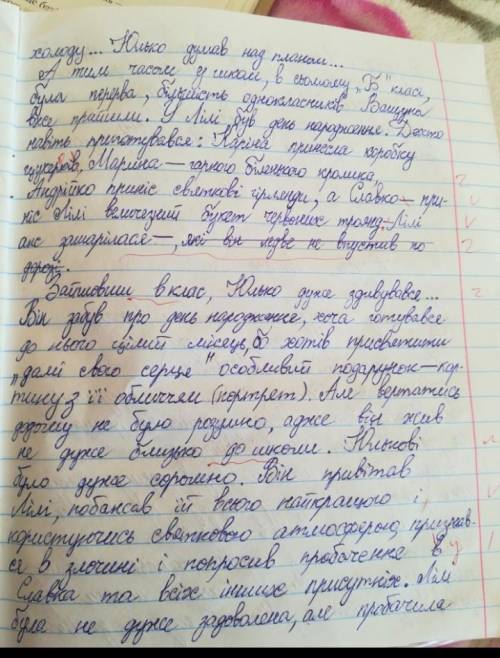 холоду... Юлько думав над планом...
А тим часом у школі, в сьомому "Б" класі,
була перерва, більшість однокласників Ващука
вже прийшли. У Лілі був день народження. Дехто
навіть приготувався: Каріна принесла коробку
цукерків, Марина — гарного біленького кролика,
Андрійко приніс святкові гірлянди, а Славко — при-
ніс Лілі величезний букет червоних троянд. Лілі
аж зашарілася —, які він ледве не впустив по
дорозі.
Зайшовши в клас, Юлько дуже здивувався...
Він забув про день народження, хоча готувався
до нього цілий місяць, бо хотів присвятити
"дамі свого серця" особливий подарунок — кар-
тину з її обличчям (портрет). Але вертатись
додому не було розумно, адже він жив
не дуже близько до школи. Юлькові
було дуже соромно. Він привітав
Лілі, побажав їй всього найкращого і,
користуючись святковою атмосферою, признав-
ся в злочині і попросив пробачення в
Славка та всіх інших присутніх. Лілі
була не дуже задоволена, але пробачила